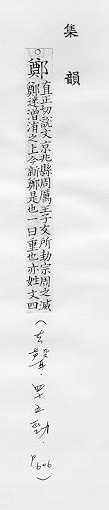 集韻
鄭直正切說文京兆縣周厲王子友所封宗周之滅
鄭徙潧洧之上今新鄭是也一曰重也亦姓文四
(去聲.四十五勁.p.606)